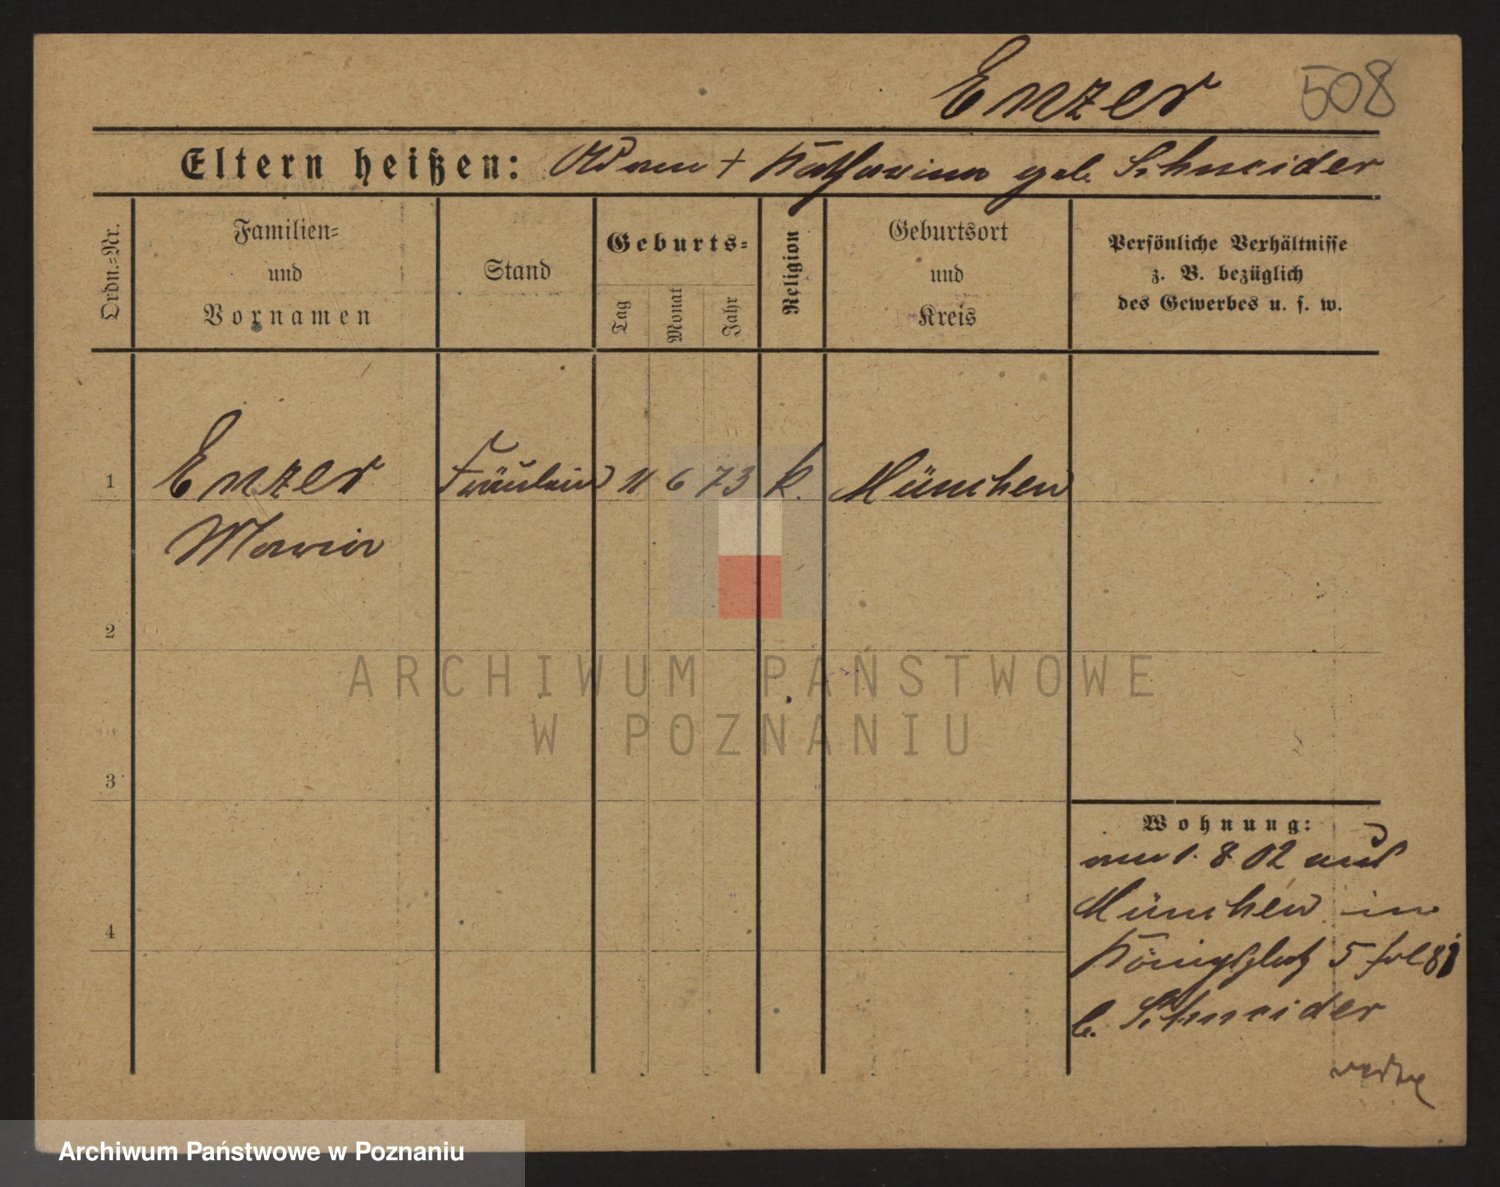 Enzer 508
Eltern heißen: Adam + Katharina geb. Schneider
Ordn.=Nr.
Familien=
und
Vornamen
Stand
Geburts=
Tag
Monat
Jahr
Religion
Geburtsort
und
Kreis
Persönliche Verhältnisse
z. B. bezüglich
des Gewerbes u. s. w.
1 Enzer Fräulein 11 6 73 k. München
Maria
2
3
4
Wohnung:
am 1. 8. 02 aus
München in
Königsplatz 5 fol 81
b. Schneider
ARCHIWUM PAŃSTWOWE
W POZNANIU
Archiwum Państwowe w Poznaniu